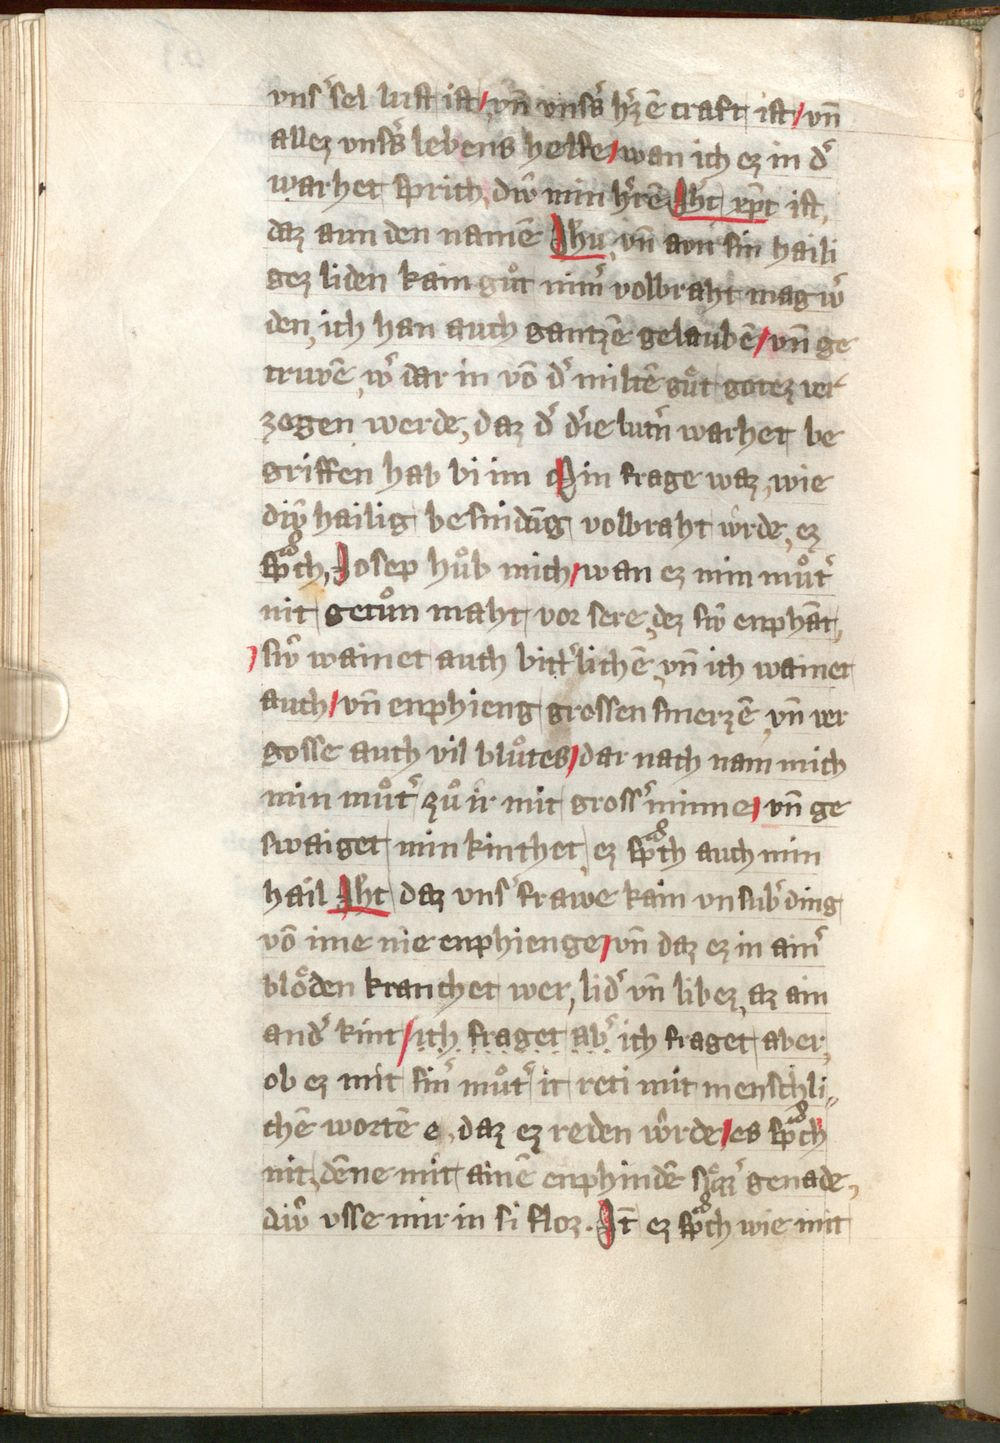 vnsˀ sel lust ist / vn̄ vnsˀs hˀzē craft ist / vn̄
allez vnsˀs lebens helfe / wan ich ez in dˀ
warhet sprich, diŵ min hˀrē Jh̄c xp̄c ist,
daz ann den namē Jhu, vn̄ ann sin haili
gez liden kain gůt nimˀ volbraht mag wˀ
den, ich han auch gantzē gelaubē / vn̄ ge
truwē, wˀ dar in vō dˀ miltē gůt gotez ver
zogen werde, daz dˀ die lutˀn warhet be
griffen hab bi im Min frage waz, wie
diŵ hailig besnidūg volbraht ẘrde, ez
spͣch, Josep hůb mich / wan ez min můtˀ
nit getůn maht vor sere, dez siŵ enphāt,
/ siŵ wainet auch bittˀlichē, vn̄ ich wainet
auch / vn̄ enphieng grossen smerzē, vn̄ ver
gosse auch vil blůtes / dar nach nam mich
min můtˀ zů ir mit grossˀ minne / vn̄ ge
swaiget min kinthet, ez spͣch auch min
hail Jh̄c daz vnsˀ frawe kain vnsubˀ ding
vō ime nie enphienge / vn̄ daz ez in ainˀ
blőden kranchet wer, lidˀ vn̄ libez, az ain
andˀ kint / ich fraget abˀ ich fraget aber,
ob ez mit sinˀ můtˀ it reti mit menschli〃
chē wortē e, daz ez reden ẘrde / es spͣch
nit, dēne mit ainē enphindē sůzzˀ genade,
diŵ vsse mir in si floz. It̄ ez spͣch wie mit